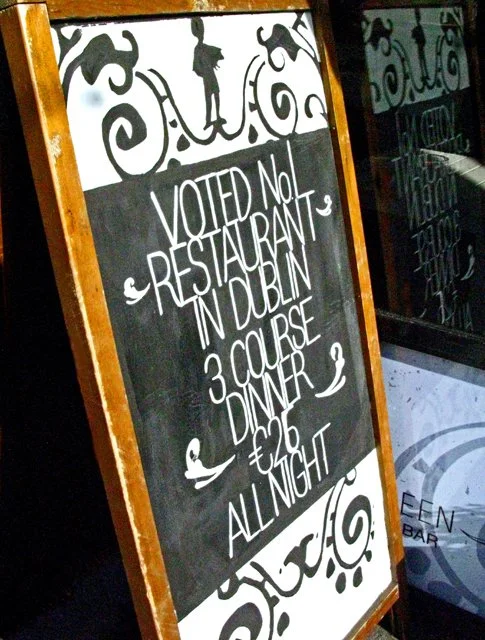 VOTED No1
RESTAURANT
IN DUBLIN
3 COURSE
DINNER
€26
ALL NIGHT
EEN
BAR